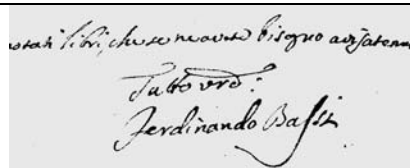 notati libri, che se ne avete bisogno avisatem
Tutto vro:
Ferdinando Bassi